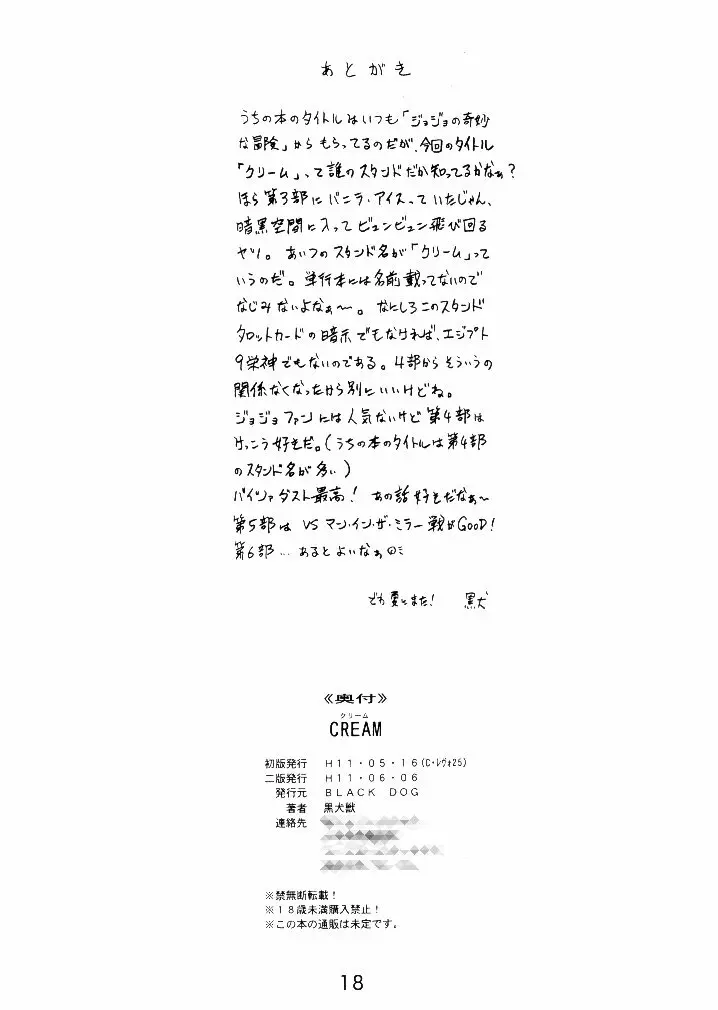 あとがき
うちの本のタイトルはいつも「ジョジョの奇妙
な冒険」からもらってるのだが、今回のタイトル
「クリーム」って誰のスタンドだか知ってるかなぁ?
ほら第3部にバニラ・アイスっていたじゃん、
暗黒空間に入ってビュンビュン飛び回る
ヤツ。あいつのスタンド名が「クリーム」って
いうのだ。単行本には名前載ってないので
なじみないよなぁ〜。なにしろこのスタンド
タロットカードの暗示でもなければ、エジプト
9栄神でもないのである。4部からそういうの
関係なくなったから別にいいけどね。
ジョジョファンには人気ないけど第4部は
けっこう好きだ。(うちの本のタイトルは第4部
のスタンド名が多い)
バイツァダスト最高!あの話好きだなぁ〜
第5部は VS マン・イン・ザ・ミラー戦がGOOD!
第6部…あるとよいなぁ
でわ夏にまた! 黒犬
《奥付》
クリーム
CREAM
初版発行 H11・05・16(C・レヴォ25)
二版発行 H11・06・06
発行元 BLACK DOG
著者 黒犬獣
連絡先
※禁無断転載!
※18歳未満購入禁止!
※この本の通販は未定です。
18